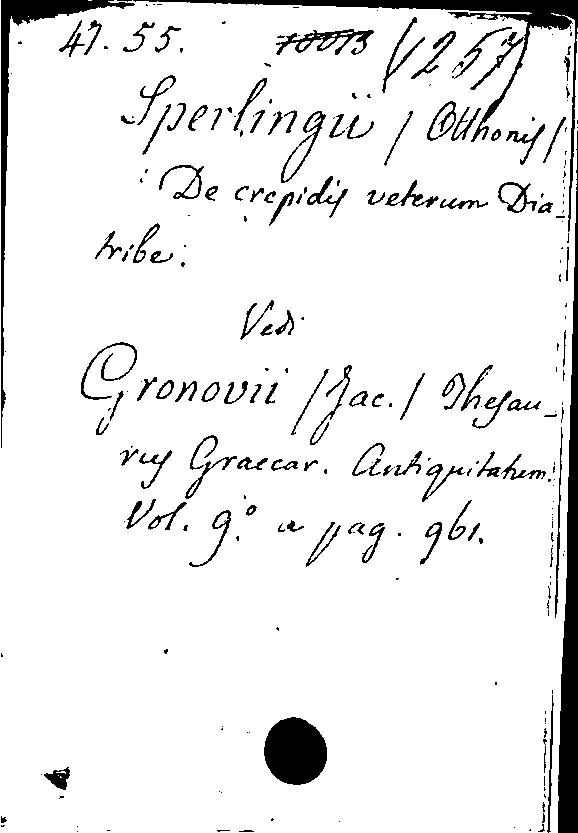 47. 55. 10013 (1257)
Sperlingii / Otthonis /
De crepidis veterum Dia-
tribe.
Vedi
Gronovii / Jac. / Thesau-
rus Graecar. Antiquitatum.
Vol. 9.º a pag. 961.